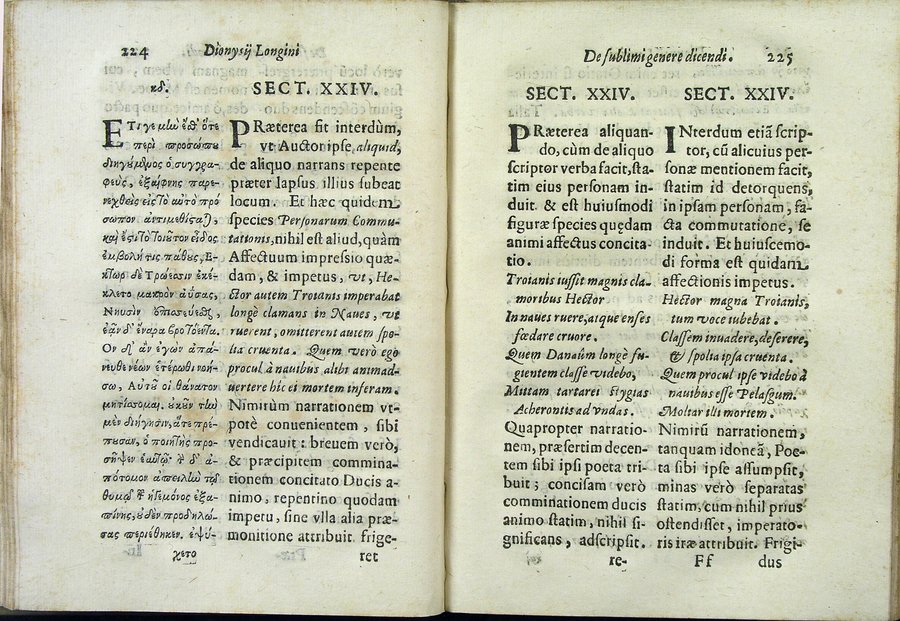 224 Dionysij Longini
κδ.
ἘΤι γε μὴν ἔσθ᾽ ὅτε
περὶ προσώπου
διηγούμενος ὁ συγγρα-
φεὺς, ἐξαίφνης παρε-
νεχθεὶς εἰς τὸ αὐτὸ πρό
σωπον ἀντιμεθίσταται,
καὶ ἔστι τὸ τοιοῦτον εἶδος
ἐμβολή τις πάθους, Ἕ-
κτωρ δὲ Τρώεσσιν ἐκέ-
κλετο μακρὸν ἀΰσας,
Νηυσὶν
ἐᾶν δ᾽ ἔναρα βροτόεντα.
Ὃν δ᾽ ἂν ἐγὼν ἀπά-
νευθε νεῶν ἑτέρωθι νοή-
σω, Αὐτοῦ οἱ θάνατον
μητίσομαι. οὐκοῦν τὴν
μὲν διήγησιν, ἅτε πρέ-
πουσαν, ὁ ποιητὴς προ-
σῆψεν ἑαυτῷ· τὴν δ᾽ ἀ-
πότομον ἀπειλὴν τῷ
θυμῷ τοῦ ἡγεμόνος ἐξα-
πίνης, οὐδὲν προδηλώ-
σας περιέθηκεν. ἐψύ-
χετο
SECT. XXIV.
PRæterea fit interdùm,
vt Auctor ipse, aliquid,
de aliquo narrans repente
præter lapsus illius subeat
locum. Et hæc quidem
species Personarum Commu-
tationis, nihil est aliud, quàm
Affectuum impressio quæ-
dam, & impetus, vt, He-
ctor autem Troianis imperabat
longè clamans in Naues, vt
ruerent, omitterent autem spo-
lia cruenta. Quem verò ego
procul à nauibus alibi animad-
uertere hic ei mortem inferam.
Nimirùm narrationem vt-
potè conuenientem, sibi
vendicauit: breuem verò,
& præcipitem commina-
tionem concitato Ducis a-
nimo, repentino quodam
impetu, sine vlla alia præ-
monitione attribuit. frige-
ret
De sublimi genere dicendi. 225
SECT. XXIV.
PRæterea aliquan-
do, cùm de aliquo
scriptor verba facit, sta-
tim eius personam in-
duit & est huiusmodi
figuræ species quędam
animi affectus concita-
tio.
Troianis iussit magnis cla-
moribus Hector
In naues ruere, atque enses
fœdare cruore.
Quem Danaûm longè fu-
gientem classe videbo,
Mittam tartarei stygias
Acherontis ad vndas.
Quapropter narratio-
nem, præsertim decen-
tem sibi ipsi poeta tri-
buit; concisam verò
comminationem ducis
animo statim, nihil si-
gnificans, adscripsit.
re-
SECT. XXIV.
INterdum etiã scrip-
tor, cũ alicuius per-
sonæ mentionem facit,
statim id detorquens,
in ipsam personam, fa-
cta commutatione, se
induit. Et huiuscemo-
di forma est quidam
affectionis impetus.
Hector magna Troianis,
tum voce iubebat.
Classem inuadere, deserere,
& spolia ipsa cruenta.
Quem procul ipse videbo à
nauibus esse Pelasgum.
Moliar illi mortem.
Nimirũ narrationem,
tanquam idoneã, Poe-
ta sibi ipse assumpsit,
minas verò separatas
statim, cum nihil prius
ostendisset, imperato-
ris iræ attribuit. Frigi-
Ff dus